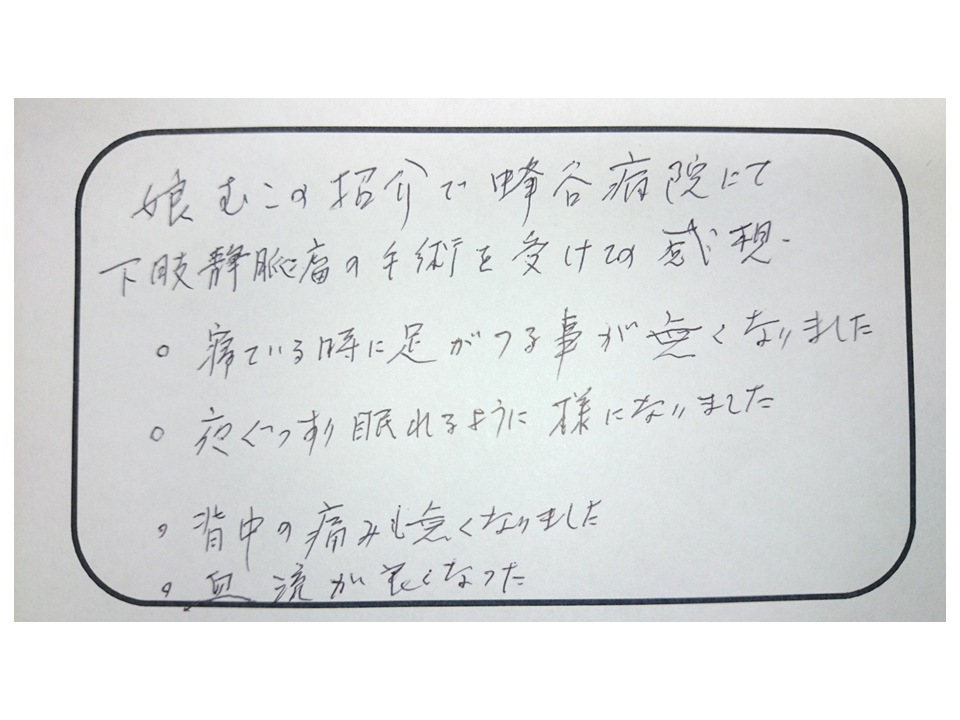 娘むこの紹介で蜂谷病院にて
下肢静脈瘤の手術を受けての感想.
○ 寝ている時に足がつる事が無くなりました
○ 夜ぐっすり眠れるように様になりました
○ 背中の痛みも無くなりました
○ 血流が良くなった